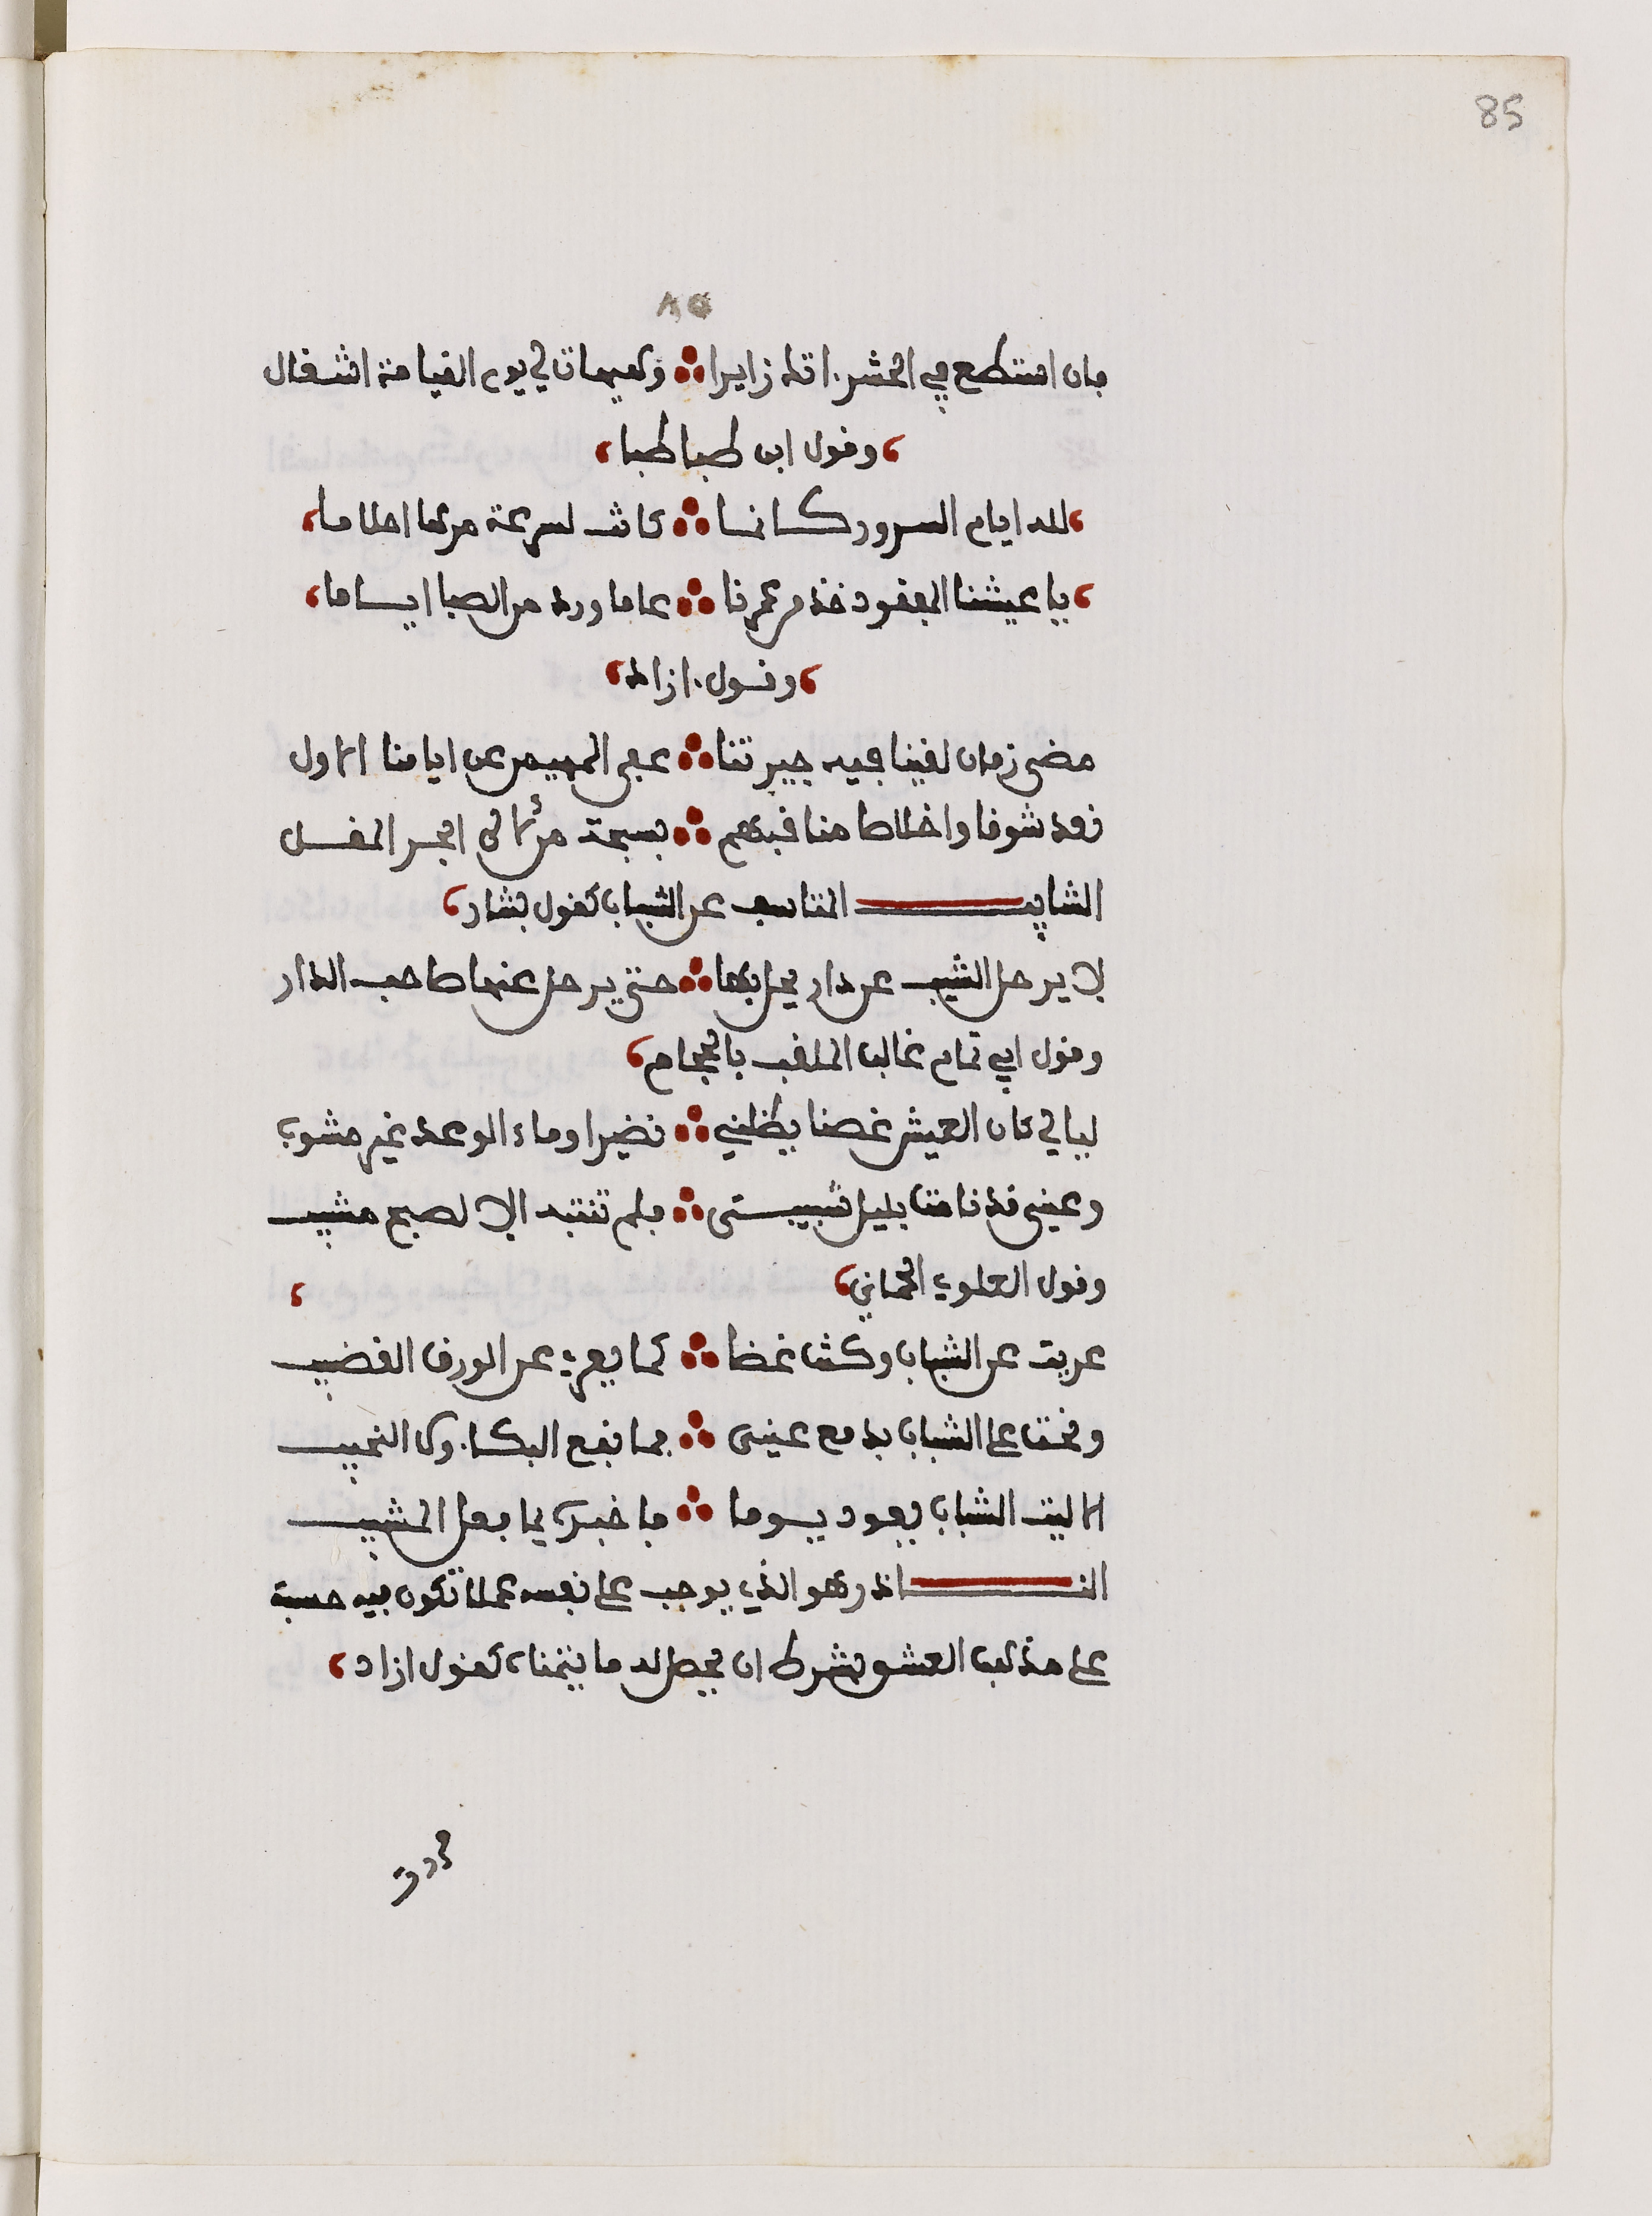 85
٨٥
فان استطع في الحشر اتك زايرا ؞ وهيهات لي يوم القيامة اشغال
وقول ابن طباطبا
لله ايام السرور كانما ؞ كانت لسرعة مرها احلاما
يا عيشنا المفقود خذ من عمرنا ؞ عاما ورد من الصبا اياما
وقول ازاد
مضى زمان لقينا فيه جيرتنا ؞ عفى المهيمن عن ايامنا الاول
نعد شوقا واخلاطا مناقبهم ؞ بسبحة من لآلي المقل
الشايب المتاسف عن الشباب كقول بشار
لا يرحل الشيب عن دار يحل بها ؞ حتى يرحل عنها صاحب الدار
وقول ابي تمام غالب الملقب بالحجام
ليالي كان العيش غصنا يظلني ؞ نضيرا وماء الوعد غير مشوب
وعيني قد نامتا بليل شبيبتي ؞ فلم تنتبه الا لصبح مشيب
وقول العلوي الحماني
عريت عن الشباب وكنت غضا ؞ كما يعرى عن الورق القضيب
ونحت على الشباب بدمع عيني ؞ فما نفع البكاء ولا النحيب
الا ليت الشباب يعود يوما ؞ فاخبره بما فعل المشيب
الناذر هو الذي يوجب على نفسه عملا تكون فيه حسبة
على مذهب العشق بشرط ان يحصل له ما يتمناه كقول ازاد